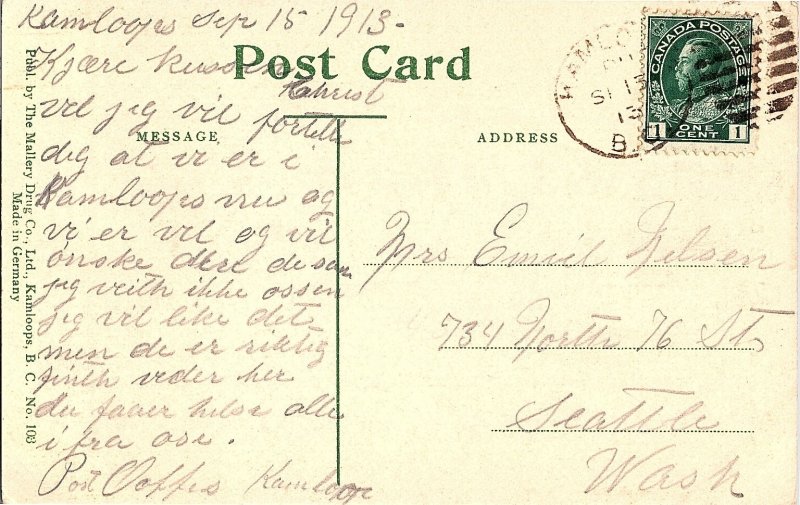 Kamloops Sep 15 1913-
Post Card
Kjære
vel jeg vil fortelle
MESSAGE
dig at vi er i
Kamloops nu og
vi er vel og vil
ønske dere de sam
jeg veith ikke ossen
jeg vil like det
men de er riktig
finth veder her
du faaer helse alle
i fra ose.
Post Ooffes Kamloops
ADDRESS
Mrs Emiel Nelsen
734 North 76 St
Seattle
Wash
CANADA POSTAGE
1 ONE CENT 1
KAMLOO
13
B.
Publ. by The Mallery Drug Co., Ltd. Kamloops, B. C. No. 103
Made in Germany